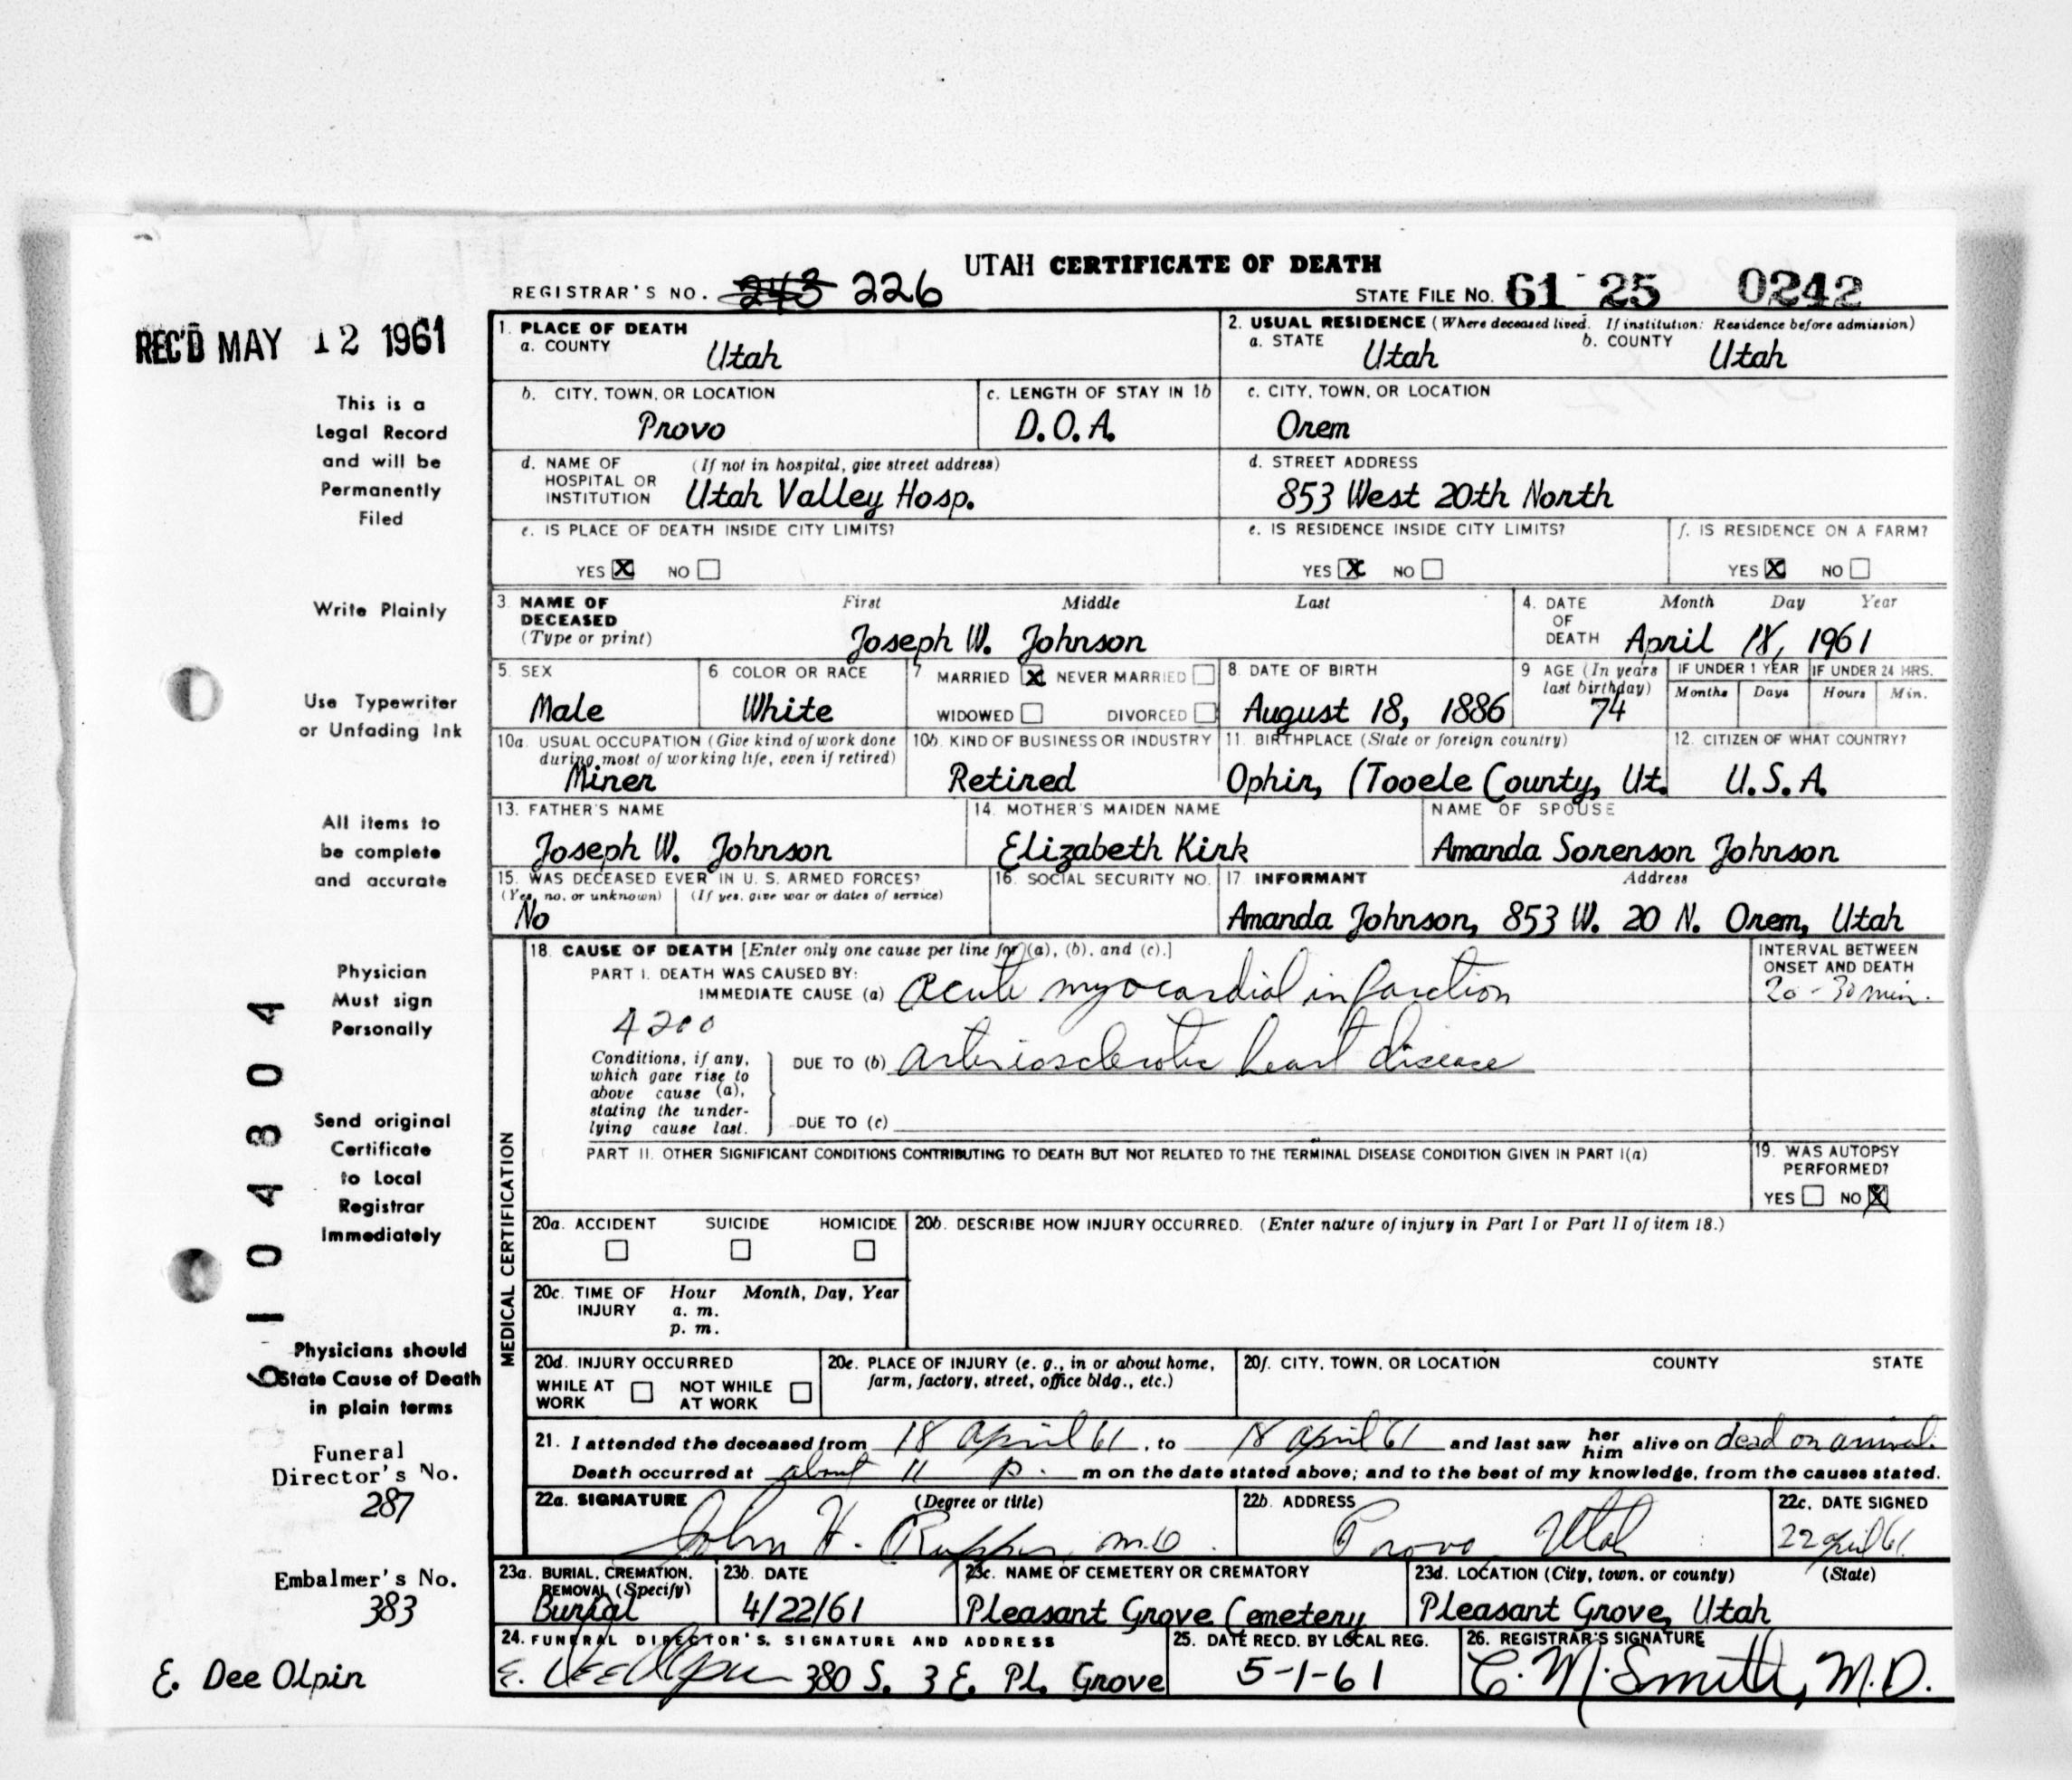 UTAH CERTIFICATE OF DEATH
REGISTRAR'S NO. 243 226
STATE FILE NO. 61 25 0242
REC'D MAY 12 1961
This is a
Legal Record
and will be
Permanently
Filed
Write Plainly
Use Typewriter
or Unfading Ink
All items to
be complete
and accurate
Physician
Must sign
Personally
Send original
Certificate
to Local
Registrar
Immediately
Physicians should
State Cause of Death
in plain terms
Funeral
Director's No.
287
Embalmer's No.
383
E. Dee Olpin
6104804
1. PLACE OF DEATH
a. COUNTY
Utah
2. USUAL RESIDENCE (Where deceased lived. If institution: Residence before admission)
a. STATE b. COUNTY
Utah Utah
b. CITY, TOWN, OR LOCATION
Provo
c. LENGTH OF STAY IN 1b
D.O.A.
c. CITY, TOWN, OR LOCATION
Orem
d. NAME OF (If not in hospital, give street address)
HOSPITAL OR
INSTITUTION Utah Valley Hosp.
d. STREET ADDRESS
853 West 20th North
e. IS PLACE OF DEATH INSIDE CITY LIMITS?
YES X NO
e. IS RESIDENCE INSIDE CITY LIMITS?
YES X NO
f. IS RESIDENCE ON A FARM?
YES X NO
3. NAME OF DECEASED First Middle Last
(Type or print) Joseph W. Johnson
4. DATE OF DEATH Month Day Year
April 18, 1961
5. SEX
Male
6 COLOR OR RACE
White
7 MARRIED X NEVER MARRIED
WIDOWED DIVORCED
8 DATE OF BIRTH
August 18, 1886
9 AGE (In years last birthday)
74
IF UNDER 1 YEAR IF UNDER 24 HRS.
Months Days Hours Min.
10a. USUAL OCCUPATION (Give kind of work done
during most of working life, even if retired)
Miner
10b. KIND OF BUSINESS OR INDUSTRY
Retired
11. BIRTHPLACE (State or foreign country)
Ophir, (Tooele County, Ut.
12. CITIZEN OF WHAT COUNTRY?
U.S.A.
13. FATHER'S NAME
Joseph W. Johnson
14. MOTHER'S MAIDEN NAME
Elizabeth Kirk
NAME OF SPOUSE
Amanda Sorenson Johnson
15. WAS DECEASED EVER IN U. S. ARMED FORCES?
(Yes, no, or unknown) (If yes, give war or dates of service)
No
16. SOCIAL SECURITY NO.
17 INFORMANT Address
Amanda Johnson, 853 W. 20 N. Orem, Utah
MEDICAL CERTIFICATION
18. CAUSE OF DEATH [Enter only one cause per line for (a), (b), and (c).]
PART I. DEATH WAS CAUSED BY:
IMMEDIATE CAUSE (a) acute myocardial infarction
4200
Conditions, if any,
which gave rise to
above cause (a),
stating the under-
lying cause last.
DUE TO (b) arteriosclerotic heart disease
DUE TO (c)
INTERVAL BETWEEN
ONSET AND DEATH
20-30 min.
PART II. OTHER SIGNIFICANT CONDITIONS CONTRIBUTING TO DEATH BUT NOT RELATED TO THE TERMINAL DISEASE CONDITION GIVEN IN PART I(a)
19. WAS AUTOPSY
PERFORMED?
YES NO X
20a. ACCIDENT SUICIDE HOMICIDE
20b. DESCRIBE HOW INJURY OCCURRED. (Enter nature of injury in Part I or Part II of item 18.)
20c. TIME OF INJURY Hour Month, Day, Year
a. m.
p. m.
20d. INJURY OCCURRED
WHILE AT WORK NOT WHILE AT WORK
20e. PLACE OF INJURY (e. g., in or about home,
farm, factory, street, office bldg., etc.)
20f. CITY, TOWN, OR LOCATION COUNTY STATE
21. I attended the deceased from 18 April 61, to 18 April 61 and last saw her him alive on dead on arrival.
Death occurred at about 11 p. m on the date stated above; and to the best of my knowledge, from the causes stated.
22a. SIGNATURE (Degree or title)
John H. Rupper M.D.
22b. ADDRESS
Provo Utah
22c. DATE SIGNED
22 April 61
23a. BURIAL, CREMATION,
REMOVAL (Specify)
Burial
23b. DATE
4/22/61
23c. NAME OF CEMETERY OR CREMATORY
Pleasant Grove Cemetery
23d. LOCATION (City, town, or county) (State)
Pleasant Grove, Utah
24. FUNERAL DIRECTOR'S. SIGNATURE AND ADDRESS
E. Dee Olpin 380 S. 3 E. Pl. Grove
25. DATE RECD. BY LOCAL REG.
5-1-61
26. REGISTRAR'S SIGNATURE
C. M. Smith, M.D.